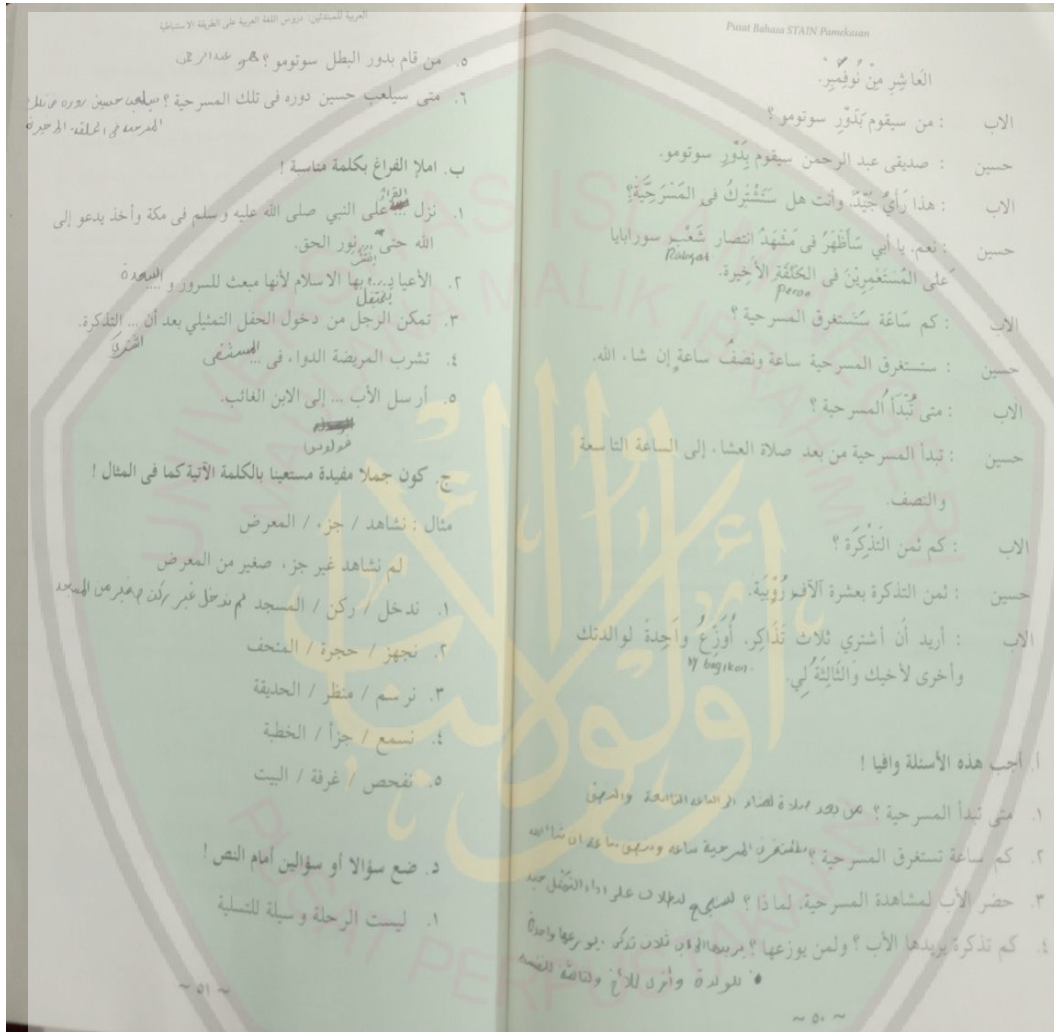 Pusat Bahasa STAIN Pamekasan
العَاشِرِ مِنْ نُوفِمْبِرْ.
الاب : من سيقوم بَدَوْرِ سوتومو ؟
حسين : صديقى عبد الرحمن سيقوم بِدَوْرِ سوتومو.
الاب : هذا رَأْيٌ جَيِّدٌ. وأنت هل سَتَشْتَرِكُ فى المَسْرَحِيَّةِ؟
حسين : نعم. يا أبي سَأَظْهَرُ فى مَشْهَدُ انتصار شَعْبِ سورابايا
عَلى المُسْتَعْمِرِيْنَ فى الحَلْقَةِ الأَخِيرة.
الاب : كم سَاعَة سَتَستغرق المسرحية ؟
حسين : ستستغرق المسرحية ساعة ونِصْفُ ساعةٍ إن شاء الله.
الاب : متى تُبْدَأُ المسرحية ؟
حسين : تبدأ المسرحية من بعد صلاة العشاء إلى الساعة التاسعة
والنصف.
الاب : كم ثمن التَذْكِرَة ؟
حسين : ثمن التذكرة بعشرة آلاف رُوْبِيَة.
الاب : أريد أَن أشتري ثلاث تَذَاكِر. أُوَزِّعُ وَاحِدةً لوالدتك
bagikan
وأخرى لأخيك وَالثَّالِثَةُ لي.
أ. أجب هذه الأسئلة وافيا !
١. متى تبدأ المسرحية ؟ من بعد صلاة العشاء الى الساعة التاسعة والنصف
٢. كم ساعة تستغرق المسرحية ؟ المسرحية ساعة ونصف ساعة ان شاء الله
٣. حضر الأب لمشاهدة المسرحية، لماذا ؟ على اداء
٤. كم تذكرة يريدها الأب ؟ ولمن يوزعها ؟ يريدها ثلاث واحدة
~ ٥٠ ~
العربية للمبتدئين: دروس اللغة العربية على الطريقة الاستنباطية
٥. من قام بدور البطل سوتومو ؟ هو عبد الرحمن
٦. متى سيلعب حسين دوره فى تلك المسرحية ؟ سيلعب حسين دوره فى تلك
المسرحية فى الحلقة الاخيرة
ب. املإ الفراغ بكلمة مناسبة !
القرآن
١. نزل ... عُلى النبي صلى الله عليه وسلم فى مكة وأخذ يدعو إلى
الله حتى ... نور الحق.
٢. الأعياد ... بها الاسلام لأنها مبعث للسرور و ...
يحتفل
٣. تمكن الرجل من دخول الحفل التمثيلي بعد أن ... التذكرة.
اشترى
٤. تشرب المريضة الدواء فى ... المستشفى
٥. أرسل الأب ... إلى الابن الغائب.
ج. كون جملا مفيدة مستعينا بالكلمة الآتية كما فى المثال !
مثال : نشاهد / جزء / المعرض
لم نشاهد غير جزء صغير من المعرض
١. ندخل / ركن / المسجد لم ندخل غير ركن صغير من المسجد
٢. نجهز / حجرة / المتحف
٣. نرسم / منظر / الحديقة
٤. نسمع / جزأ / الخطبة
٥. نفحص / غرفة / البيت
د. ضع سؤالا أو سؤالين أمام النص !
١. ليست الرحلة وسيلة للتسلية
~ ٥١ ~